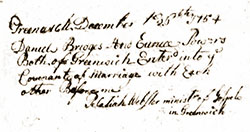 Greenwich December 25th 1754
Daniel Bridges And Eunice Powers
Both of Greenwich Enter'd into ye
Covenant of Marriage with Each
other Before me
Pelatiah Webster minister of Gospel
in Greenwich